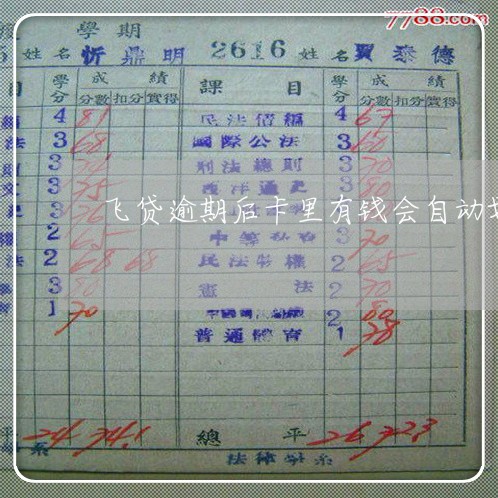 7788.com
學 期
5 姓名 忻鼎明 2616 姓名 賈泰德
目 學分 成績 課目 學分 成績
分數 扣分 實得 分數 扣分 實得
4 81 民法債編 4 67
法 3 68 國際公法 3 60
3 刑法總則 3 70
3 75 西洋通史 3 80
飞贷逾期后卡里有钱会自动划
3 76
2 65 3 70
法 2 68 68 民法物權 2 65
3 80 憲法 2 70
1 70 2 80
普通體育 1 78
平 24 74.1 總平 26 72.3
系 法律學系